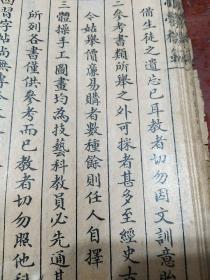 備生徒之遺忘已耳教者切勿因文訓意貽
二參考書類所舉之外可採者甚多至經史古
今姑舉價廉易購者數種餘則任人自擇
三體操手工圖畫均為技藝科教員必先通其
所列各書僅供參考而已教者切勿照他科
習字帖尚無專